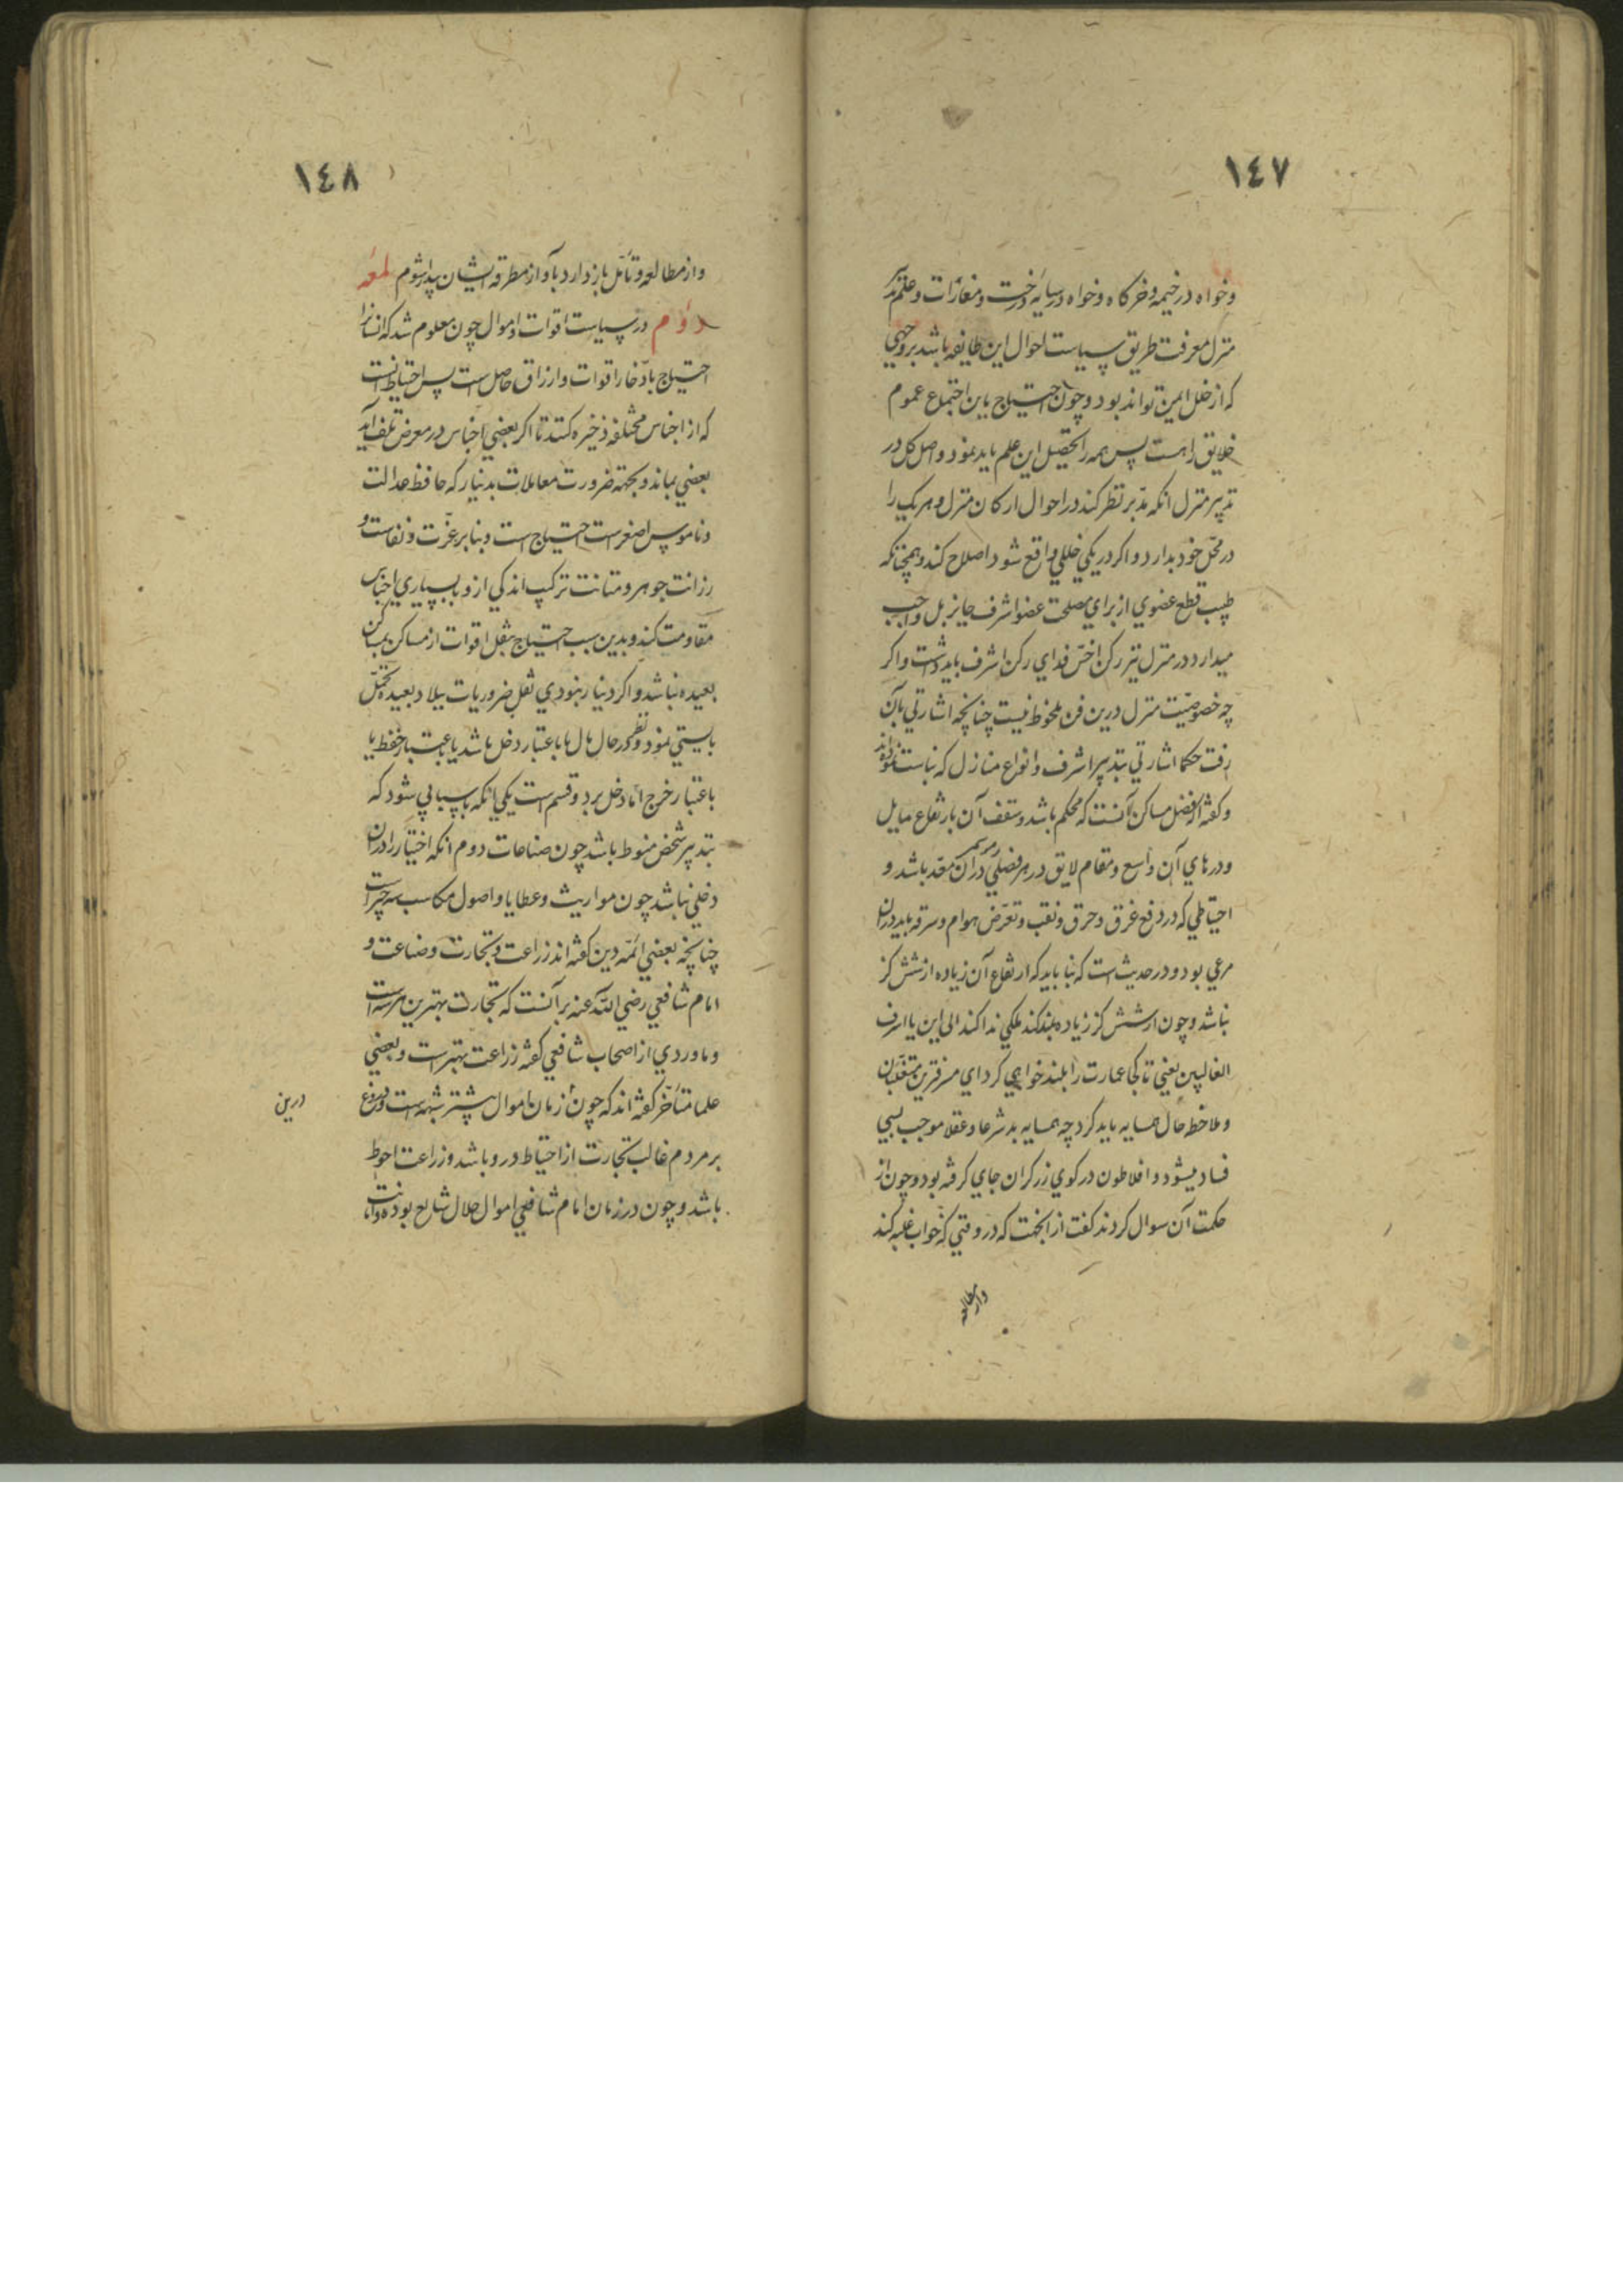 ١٤٧
وخواه در خيمه و خركاه وخواه در سايه درخت ومغارات وعلم تدبير
منزل معرفت طريق سياست احوال اين طايفه باشد بروجهي
كه از خلل ايمن تواند بود وچون احتياج باين اجتماع عموم
خلايق را هست پس همه را تحصيل اين علم بايد نمود واصل كل در
تدبير منزل انكه مدبر نظر كند در احوال اركان منزل وهريك را
در محل خود بدارد واكر در يكي خللي واقع شود اصلاح كند وهمچنانكه
طبيب قطع عضوي از براي مصلحت عضو اشرف جايز بل واجب
ميدارد در منزل نيز ركن اخس فداي ركن اشرف بايد داشت واكر
چه خصوصيت منزل درين فن ملحوظ نيست چنانچه اشارتي بآن
رفت حكما اشارتي بتدبير اشرف وانواع منازل كه بناست نموده اند
وكفته اند افضل مساكن آنست كه محكم باشد وسقف آن بارتفاع مايل
ودرهاي آن واسع ومقام لايق در هر فصلي وموسمي در آن معد باشد و
احتياطي كه در دفع غرق وحرق ونقب وتعرض هوام وسرقه بايد دران
مرعي بود ودر حديث است كه بنا بايد كه ارتفاع آن زياده از شش كز
نباشد وچون از شش كز زياده بلند كند ملكي ندا كند الى اين يا اسرف
الغالبين يعني تا كجا عمارت را بلند خواهي كرد اي مسرفترين متغلبان
وملاحظه حال همسايه بايد كرد چه همسايه بد شرعا وعقلا موجب بسي
فساد ميشود وافلاطون در كوي زركران جاي كرفته بود وچون از
حكمت آن سوال كردند كفت از انجهت كه در وقتي كه خواب غلبه كند
واز مطالعه
١٤٨
واز مطالعه وتأمل باز دارد بآواز مطرقه ايشان بيدار شوم لمعه
دوم در سياست اقوات واموال چون معلوم شد كه انسانرا
احتياج بادخار اقوات وارزاق حاصل است پس احتياط آنست
كه از اجناس مختلفه ذخيره كنند تا اكر بعضي اجناس در معرض تلف آيد
بعضي بماند وبجهته ضرورت معاملات بدينار كه حافظ عدالت
وناموس اصغر است احتياج است وبنابر عزت ونفاست و
رزانت جوهر ومتانت تركيب اندكي ازو با بسياري اجناس
مقاومت كند وبدين سبب احتياج بنقل اقوات از مساكن بمساكن
بعيده نباشد واكر دينار نبودي نقل ضروريات ببلاد بعيده تحمل
بايستي نمود ونظر در حال مال يا باعتبار دخل باشد يا باعتبار حفظ يا
باعتبار خرج اما دخل برد وقسم است يكي انكه باسبابي شود كه
بتدبير شخص منوط باشد چون صناعات دوم انكه اختيار را دران
دخلي نباشد چون مواريث وعطايا واصول مكاسب سه چيز است
چنانچه بعضي ائمه دين كفته اند زراعت وتجارت وصناعت و
امام شافعي رضي الله عنه برآنست كه تجارت بهترين هر سه است
وماوردي از اصحاب شافعي كفته زراعت بهترست وبعضي
علما متأخر كفته اند كه چون درين ازمان باموال بيشتر شبهه است ودروغ
درين
بر مردم غالب تجارت از احتياط دور باشد وزراعت احوط
باشد وچون در زمان امام شافعي اموال حلال شايع بوده وامانت